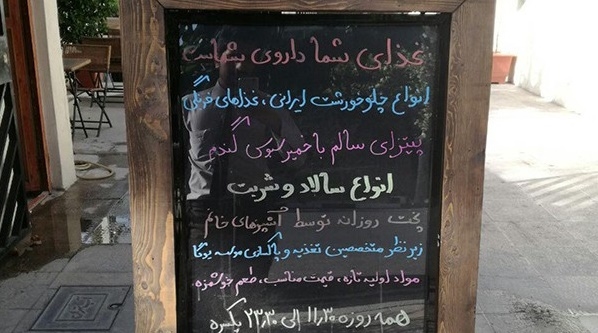 غذای شما داروی شماست
انواع چلوخورشت ایرانی، غذاهای فرنگی
پیتزای سالم با خمیر سبوس گندم
انواع سالاد و شربت
پخت روزانه توسط آشپزهای خانم
زیر نظر متخصصین تغذیه و پاکسازی موسسه یوگا
مواد اولیه تازه، قیمت مناسب، طعم خوشمزه
همه روزه ۱۱:۳۰ الی ۲۳:۳۰ یکسره